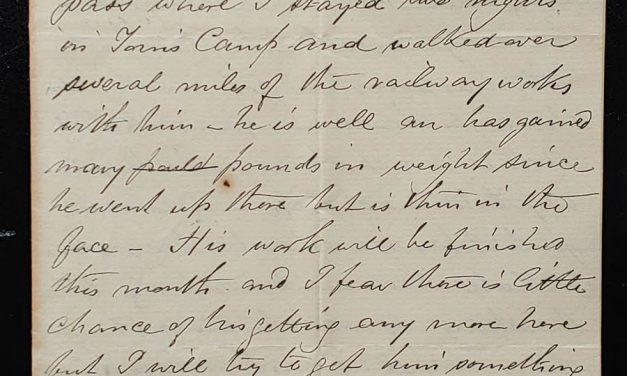 pass where I stayed two nights
in Tom's Camp and walked over
several miles of the railway works
with him - he is well an has gained
many pounds in weight since
he went up there but is thin in the
face - His work will be finished
this month and I fear there is little
chance of his getting any more here
but I will try to get him something